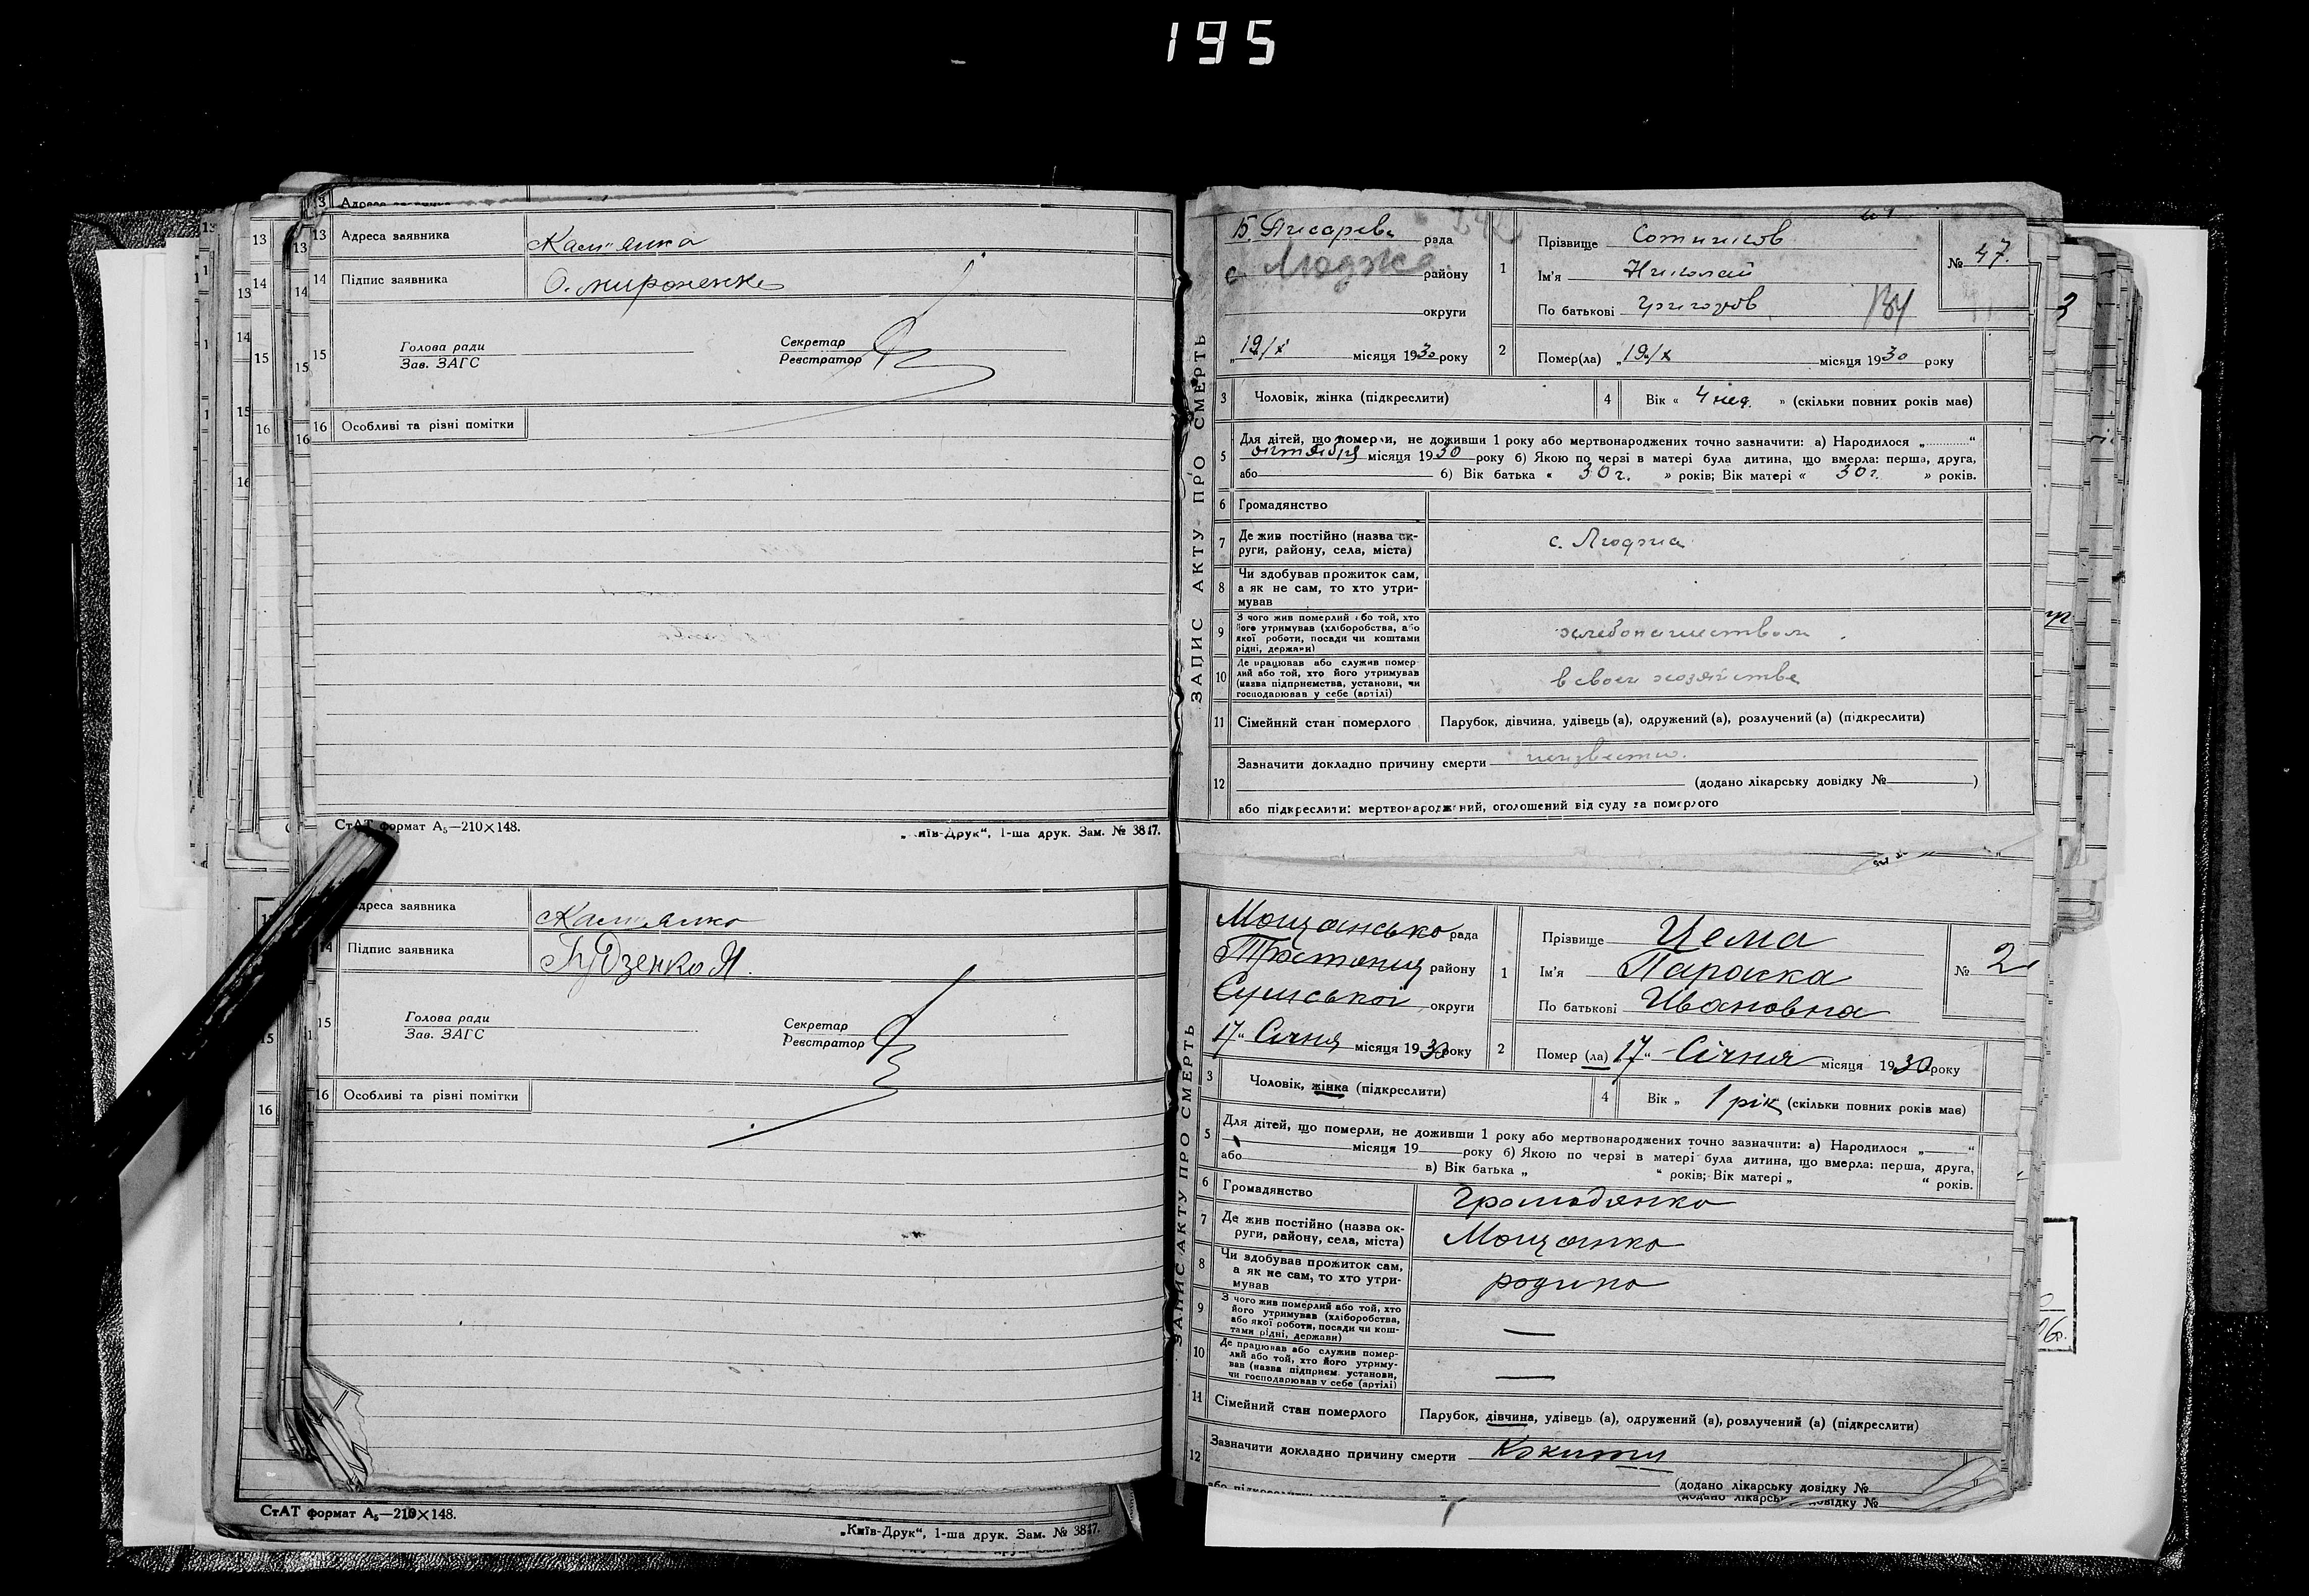 195
13 Адреса заявника Кам'янка
14 Підпис заявника О. Мироненко
15 Голова ради
Зав. ЗАГС
Секретар
Реєстратор
16 Особливі та різні помітки
СтАТ формат А₅—210×148.
„Київ-Друк“, 1-ша друк. Зам. № 3817.
Адреса заявника Кам'янка
14 Підпис заявника Гудзенко Я.
15 Голова ради
Зав. ЗАГС
Секретар
Реєстратор
16 Особливі та різні помітки
СтАТ формат А₅—210×148.
„Київ-Друк“, 1-ша друк. Зам. № 3817.
ЗАПИС АКТУ ПРО СМЕРТЬ
Б. Писарев. рада
с. Люджа району
округи
„19/X місяця 1930 року
1 Прізвище Сотников
Ім'я Николай
По батькові Григоров
№ 47.
2 Помер(ла) „19/X місяця 1930 року
3 Чоловік, жінка (підкреслити)
4 Вік « 4 нед. » (скільки повних років має)
5 Для дітей, що померли, не доживши 1 року або мертвонароджених точно зазначити: а) Народилося „ “
октября місяця 1930 року б) Якою по черзі в матері була дитина, що вмерла: перша, друга,
або б) Вік батька « 30 г. » років; Вік матері « 30 г. » років.
6 Громадянство
7 Де жив постійно (назва ок-
руги, району, села, міста) с. Люджа
8 Чи здобував прожиток сам,
а як не сам, то хто утри-
мував
9 З чого жив померлий або той, хто
його утримував (хліборобства, або
якої роботи, посади чи коштами
рідні, держави) хлебопашеством
10 Де працював або служив помер
лий або той, хто його утримував
(назва підприємства, установи, чи
господарював у себе (артілі) в своем хозяйстве
11 Сімейний стан померлого Парубок, дівчина, удівець (а), одружений (а), розлучений (а) (підкреслити)
12 Зазначити докладно причину смерти неизвестно.
(додано лікарську довідку № )
або підкреслити: мертвонароджений, оголошений від суду за померлого
ЗАПИС АКТУ ПРО СМЕРТЬ
Мощанська рада
Тростянец району
Сумської округи
17“ Січня місяця 1930 року
1 Прізвище Цема
Ім'я Параска
По батькові Ивановна
№ 2
2 Помер (ла) 17“ Січня місяця 1930 року
3 Чоловік, жінка (підкреслити)
4 Вік „ 1 рік (скільки повних років має)
5 Для дітей, що померли, не доживши 1 року або мертвонароджених точно зазначити: а) Народилося „ “
місяця 19 року б) Якою по черзі в матері була дитина, що вмерла: перша, друга,
або в) Вік батька „ “ років; Вік матері „ “ років.
6 Громадянство Громадянка
7 Де жив постійно (назва ок-
руги, району, села, міста) Мощанка
8 Чи здобував прожиток сам,
а як не сам, то хто утри-
мував родина
9 З чого жив померлий або той, хто
його утримував (хліборобства,
або якої роботи, посади чи кош-
тами рідні, держави) —
10 Де працював або служив помер-
лий або той, хто його утриму-
вав (назва підприєм. установи,
чи господарював у себе (артілі) —
11 Сімейний стан померлого Парубок, дівчина, удівець (а), одружений (а), розлучений (а) (підкреслити)
12 Зазначити докладно причину смерти
(додано лікарську довідку №